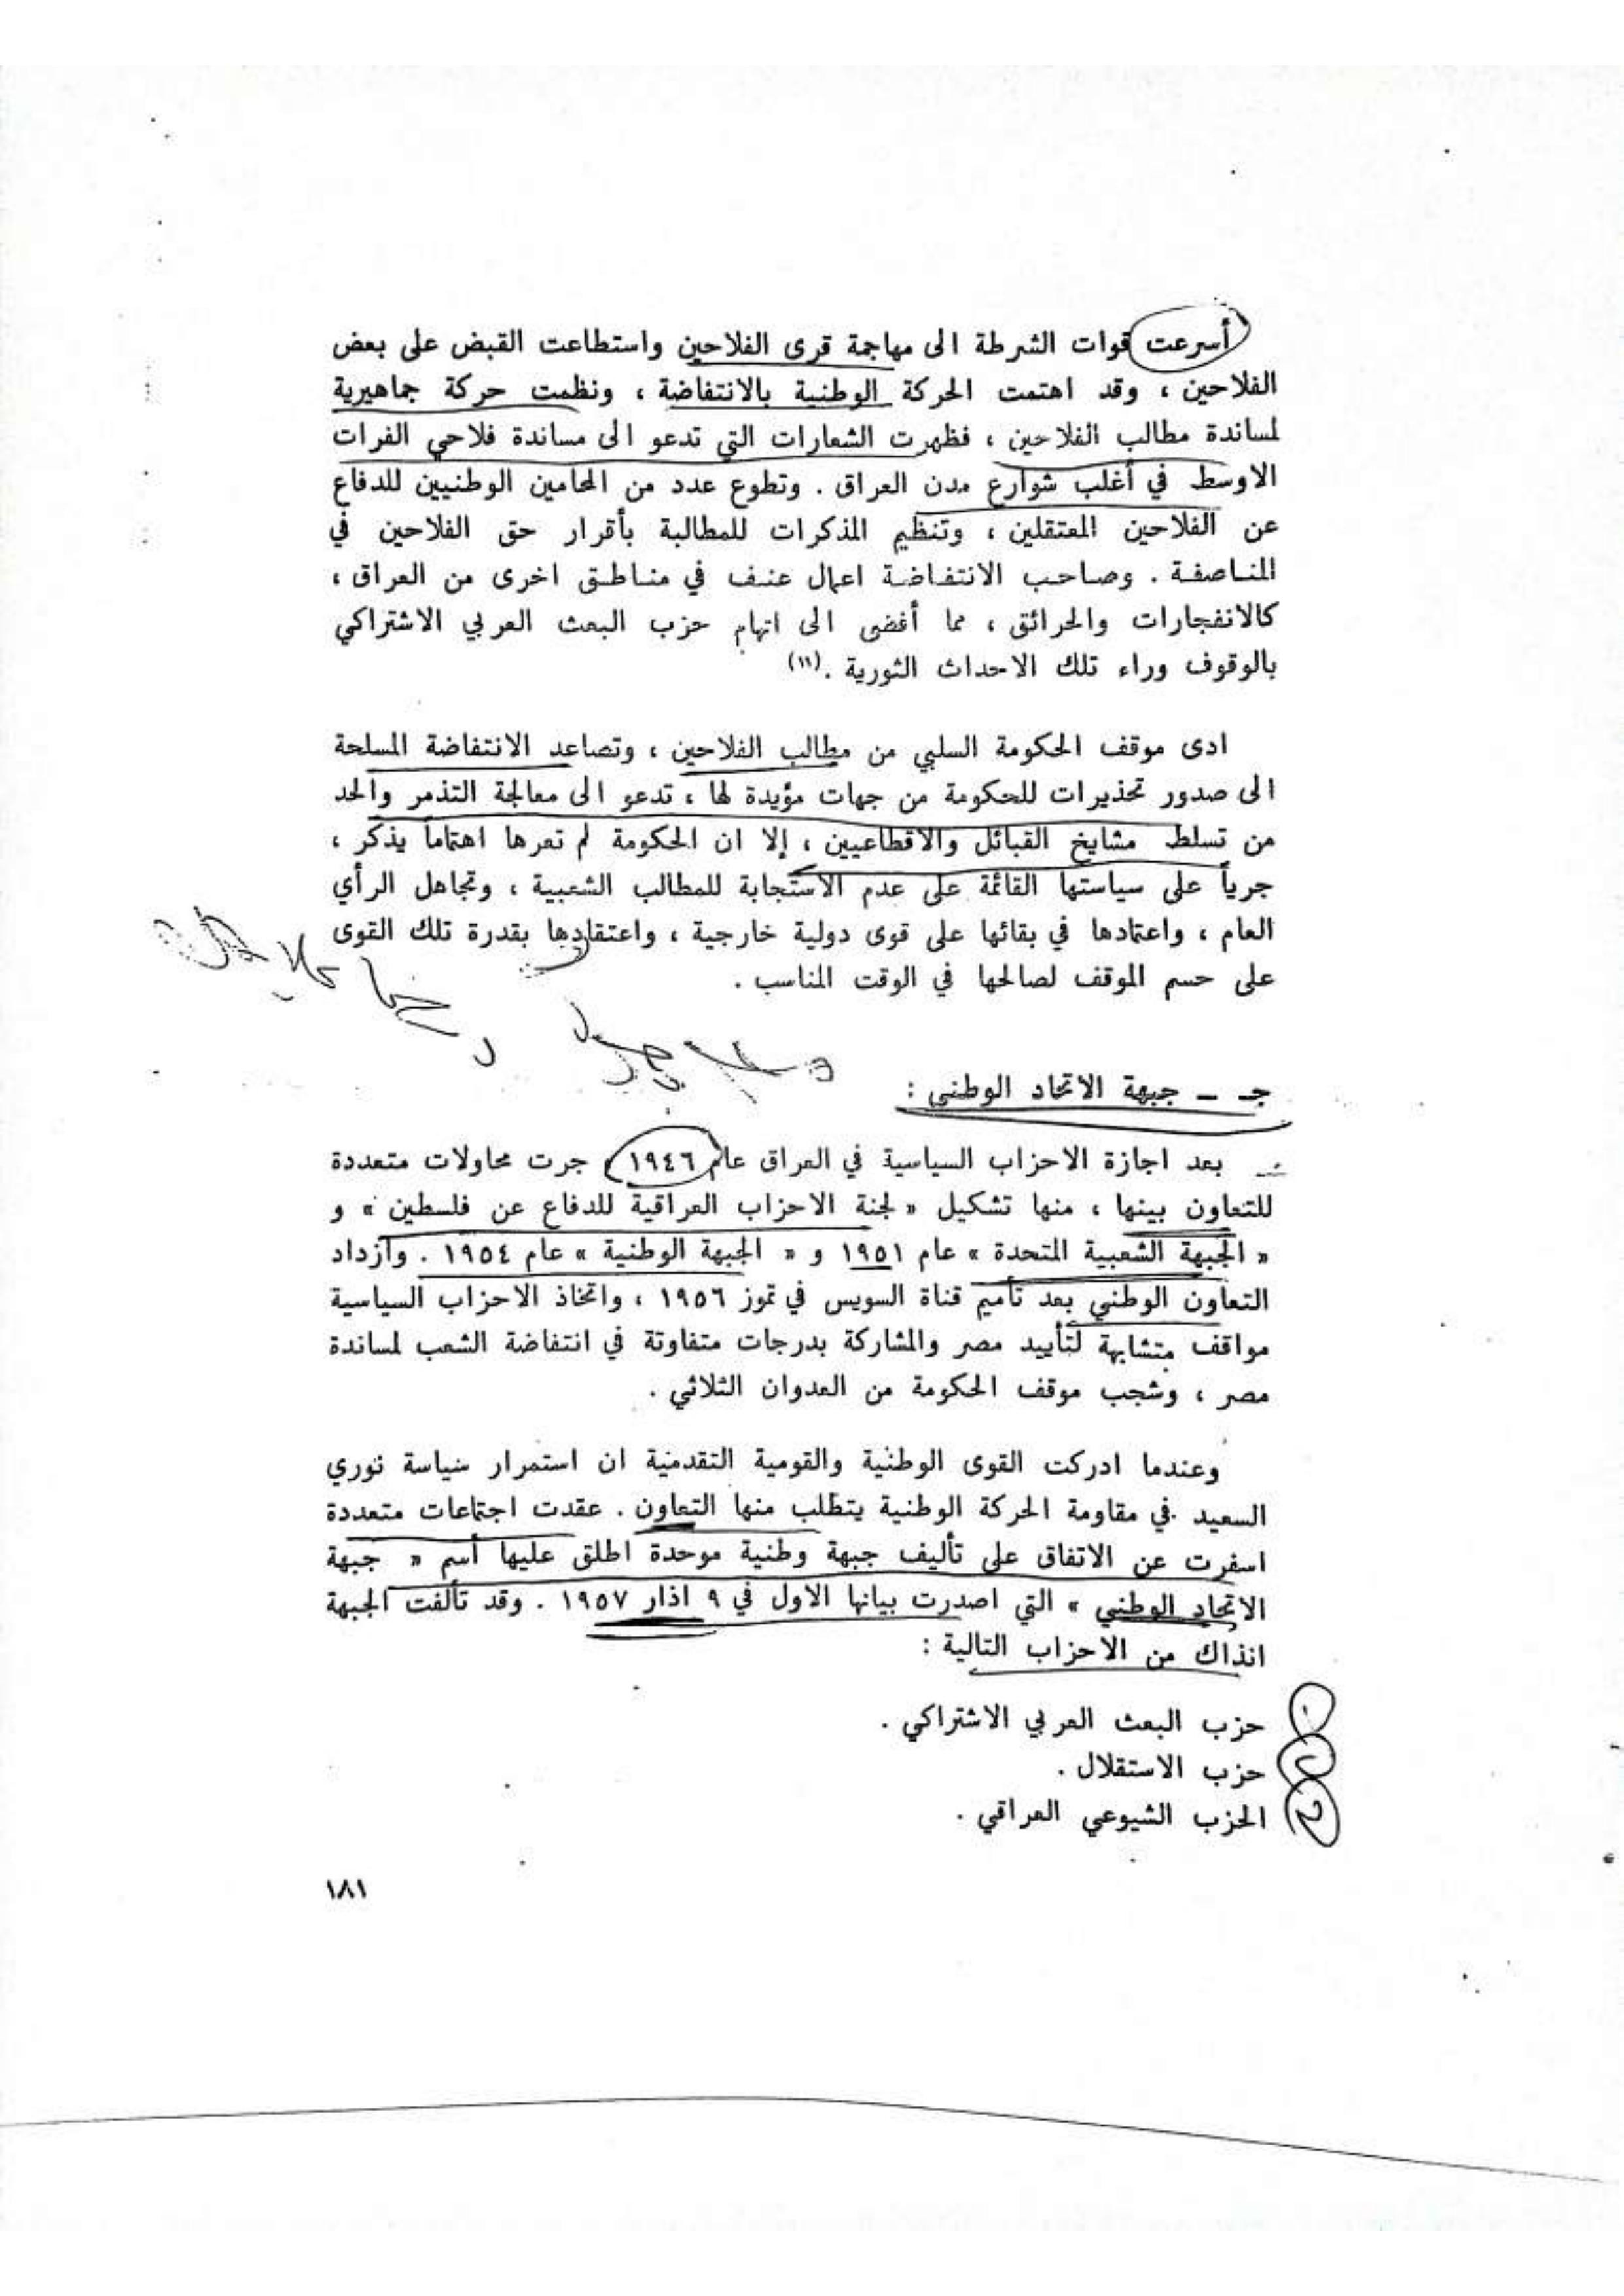 أسرعت قوات الشرطة الى مهاجمة قرى الفلاحين واستطاعت القبض على بعض
الفلاحين ، وقد اهتمت الحركة الوطنية بالانتفاضة ، ونظمت حركة جماهيرية
لمساندة مطالب الفلاحين ، فظهرت الشعارات التي تدعو الى مساندة فلاحي الفرات
الاوسط في أغلب شوارع مدن العراق . وتطوع عدد من المحامين الوطنيين للدفاع
عن الفلاحين المعتقلين ، وتنظيم المذكرات للمطالبة بأقرار حق الفلاحين في
المناصفة . وصاحب الانتفاضة اعمال عنف في مناطق اخرى من العراق ،
كالانفجارات والحرائق ، مما أفضى الى اتهام حزب البعث العربي الاشتراكي
بالوقوف وراء تلك الاحداث الثورية .(١١)
ادى موقف الحكومة السلبي من مطالب الفلاحين ، وتصاعد الانتفاضة المسلحة
الى صدور تحذيرات للحكومة من جهات مؤيدة لها ، تدعو الى معالجة التذمر والحد
من تسلط مشايخ القبائل والاقطاعيين ، إلا ان الحكومة لم تعرها اهتماماً يذكر ،
جرياً على سياستها القائمة على عدم الاستجابة للمطالب الشعبية ، وتجاهل الرأي
العام ، واعتمادها في بقائها على قوى دولية خارجية ، واعتقادها بقدرة تلك القوى
على حسم الموقف لصالحها في الوقت المناسب .
جـ ـ جبهة الاتحاد الوطني :
بعد اجازة الاحزاب السياسية في العراق عام ١٩٤٦ ، جرت محاولات متعددة
للتعاون بينها ، منها تشكيل « لجنة الاحزاب العراقية للدفاع عن فلسطين » و
« الجبهة الشعبية المتحدة » عام ١٩٥١ و « الجبهة الوطنية » عام ١٩٥٤ . وازداد
التعاون الوطني بعد تأميم قناة السويس في تموز ١٩٥٦ ، واتخاذ الاحزاب السياسية
مواقف متشابهة لتأييد مصر والمشاركة بدرجات متفاوتة في انتفاضة الشعب لمساندة
مصر ، وشجب موقف الحكومة من العدوان الثلاثي .
وعندما ادركت القوى الوطنية والقومية التقدمية ان استمرار سياسة نوري
السعيد في مقاومة الحركة الوطنية يتطلب منها التعاون . عقدت اجتماعات متعددة
اسفرت عن الاتفاق على تأليف جبهة وطنية موحدة اطلق عليها أسم « جبهة
الاتحاد الوطني » التي اصدرت بيانها الاول في ٩ اذار ١٩٥٧ . وقد تألفت الجبهة
انذاك من الاحزاب التالية :
حزب البعث العربي الاشتراكي .
حزب الاستقلال .
الحزب الشيوعي العراقي .
١٨١